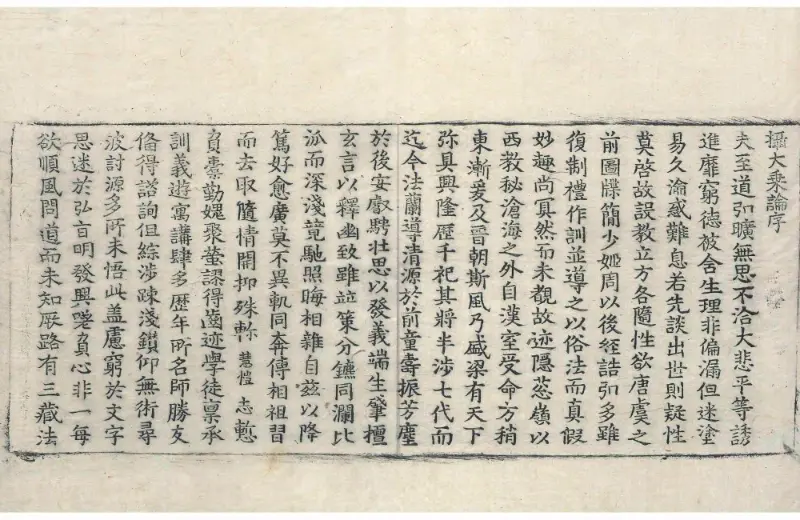 攝大乘論序
夫至道弘曠無思不洽大悲平等誘
進靡窮德被含生理非偏漏但迷塗
易久淪惑難息若先談出世則疑性
莫啓故設教立方各隨性欲唐虞之
前圖牒簡少姬周以後經誥弘多雖
復制禮作訓並導之以俗法而真假
妙趣尚冥然而未覩故迹隱葱嶺以
西教秘滄海之外自漢室受命方稍
東漸爰及晉朝斯風乃盛梁有天下
弥具興隆歷千祀其將半涉七代而
迄今法蘭導清源於前童壽振芳塵
於後安叡騁壯思以發義端生肇擅
玄言以釋幽致雖並策分鑣同瀾比
派而深淺競馳照晦相雜自茲以降
篤好愈廣莫不異軌同奔傳相祖習
而去取隨情開抑殊軫慧愷志慙
負橐勤愧聚螢謬得齒迹學徒禀承
訓義遊寓講肆多歷年所名師勝友
俻得諮詢但綜涉踈淺鑽仰無術尋
波討源多所未悟此盖慮窮於文字
思迷於弘旨明發興嗟負心非一每
欲順風問道而未知厥路有三藏法